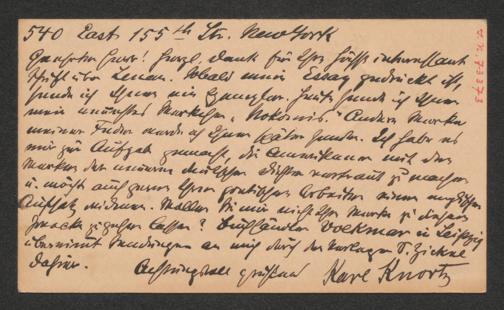 540 East 155th Str. New York
Geehrter Herr! Herzl. Dank für Ihre höchst interessante
Schrift über Lenau. Sobald mein Essay gedruckt ist,
sende ich Ihnen ein Exemplar. Heute sende ich Ihnen
mein neuestes Werkchen, Nokomis. Andere Werke
meiner Feder werde ich Ihnen später senden. Ich habe es
mir zur Aufgabe gemacht, die Amerikaner mit den
Werken der neueren deutschen Dichter vertraut zu machen
u. möchte auch gerne Ihren poetischen Arbeiten einen englischen
Aufsatz widmen. Wollen Sie mir nicht Ihre Werke zu diesem
Zwecke zugehen lassen? Buchhändler Volckmar in Leipzig
übernimmt Sendungen an mich durch den Verleger E. Zickel
dahier.
Achtungsvoll grüßend
Karl Knortz
I.N. 73373